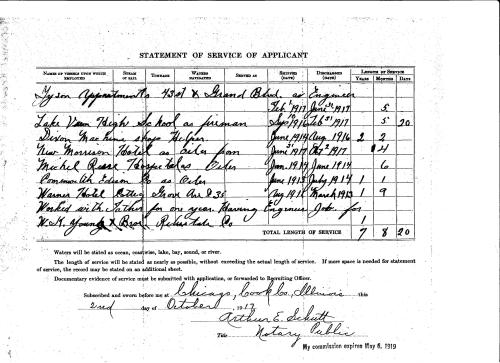 STATEMENT OF SERVICE OF APPLICANT
NAMES OF VESSELS UPON WHICH EMPLOYED STEAM OR SAIL TONNAGE WATERS NAVIGATED SERVED AS SHIPPED (DATE) DISCHARGED (DATE) LENGTH OF SERVICE
YEARS MONTHS DAYS
Tyson Appartments 43 St & Grand Blvd. as Engineer
Feb 1 1917 June 1917 5
Lake View High School as fireman Sept 1916 Feb 1917 5 20
Dixon Machine shops Helper June 1914 Aug 1916 2 2
New Morrison Hotel as Oiler from June 1917 Oct 1917 4
Michel Reese Hospital as Oiler Jan 1914 June 1914 6
Edison Co as Oiler 1913 1914 1 1
Warner Hotel Cottage Grove Av & 35 Aug 1911 March 1913 1 9
Worked with Father for one year Having Engineer Job for
W.H. Young & Bros Real estate Co 1
TOTAL LENGTH OF SERVICE 7 8 20
Waters will be stated as ocean, coastwise, lake, bay, sound, or river.
The length of service will be stated as nearly as possible, without exceeding the actual length of service. If more space is needed for statement
of service, the record may be stated on an additional sheet.
Documentary evidence of service must be submitted with application, or forwarded to Recruiting Officer.
Subscribed and sworn before me at Chicago, Cook Co, Illinois this
2nd day of October, 1917
Arthur E. Schutt
Title Notary Public
My commission expires May 6, 1919